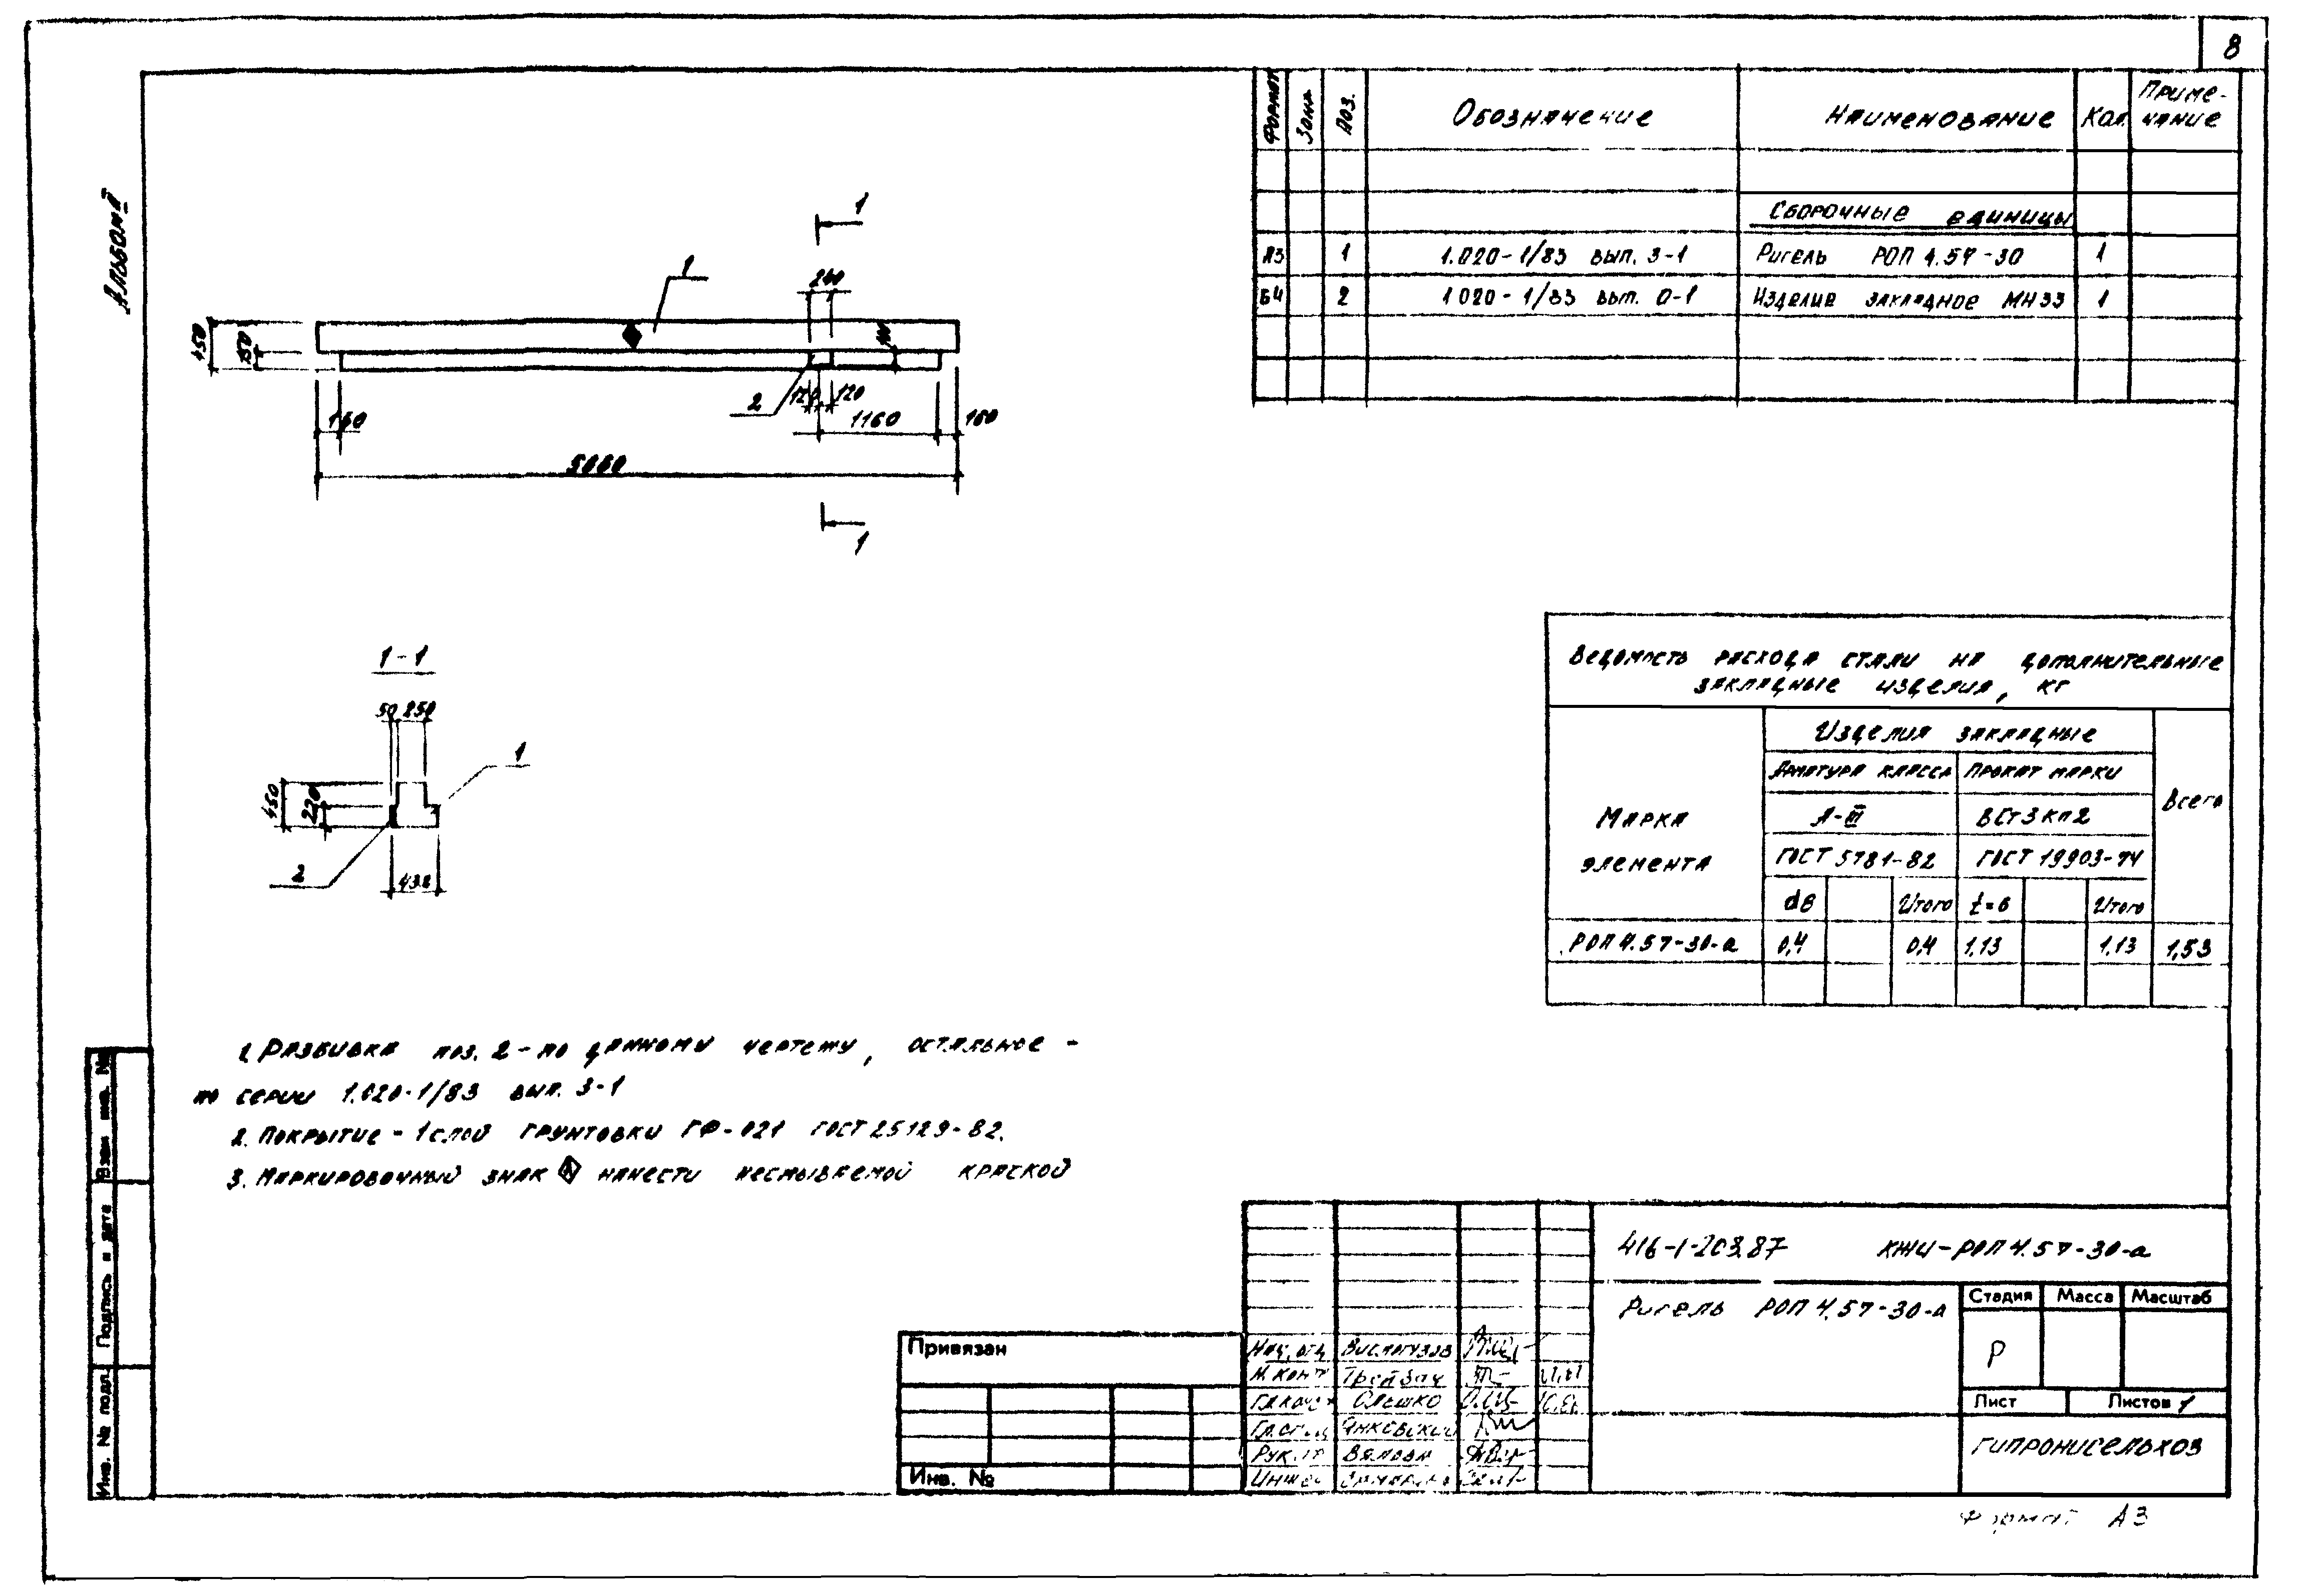 8
Альбом II
Формат Зона Поз. Обозначение Наименование Кол. Приме-
чание
Сборочные единицы
А3 1 1.020-1/83 вып. 3-1 Ригель РОП 4.57-30 1
Б4 2 1.020-1/83 вып. 0-1 Изделие закладное МН33 1
1
1
240
450
150
2
120 120
160 1160 160
5660
1
1-1
50 250
1
450
220
2
Ведомость расхода стали на дополнительные
закладные изделия, кг
Марка
элемента
Изделия закладные
Всего
Арматура класса Прокат марки
А-III ВСт3кп2
ГОСТ 5781-82 ГОСТ 19903-74
d8 Итого t=6 Итого
РОП 4.57-30-а 0,4 0,4 1,13 1,13 1,53
1. Разбивка поз. 2 - по данному чертежу, остальное -
по серии 1.020-1/83 вып. 3-1
2. Покрытие - 1 слой грунтовки ГФ-021 ГОСТ 25129-82.
3. Маркировочный знак нанести несмываемой краской
Взам инв. №
Подпись и дата
Инв. № подл.
Привязан
Инв. №
416-1-203.87 КЖИ-РОП 4.57-30-а
Ригель РОП 4.57-30-а
Стадия Масса Масштаб
Р
Лист Листов 1
Гипронисельхоз
Нач. отд
Н. конт
Олешко
Янковский
Рук. гр
Формат А3